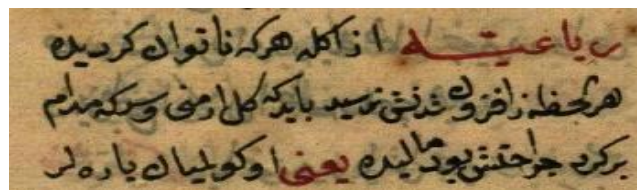 رباعیـــــه از اکله هرکه ناتوان گردیده
هر لحظه ز افزون شدنش ترسید باید که گل ارمنی و سرکه مدام
برگرد جراحتش بود مالیده یعنی اوکوملیان یاره لر